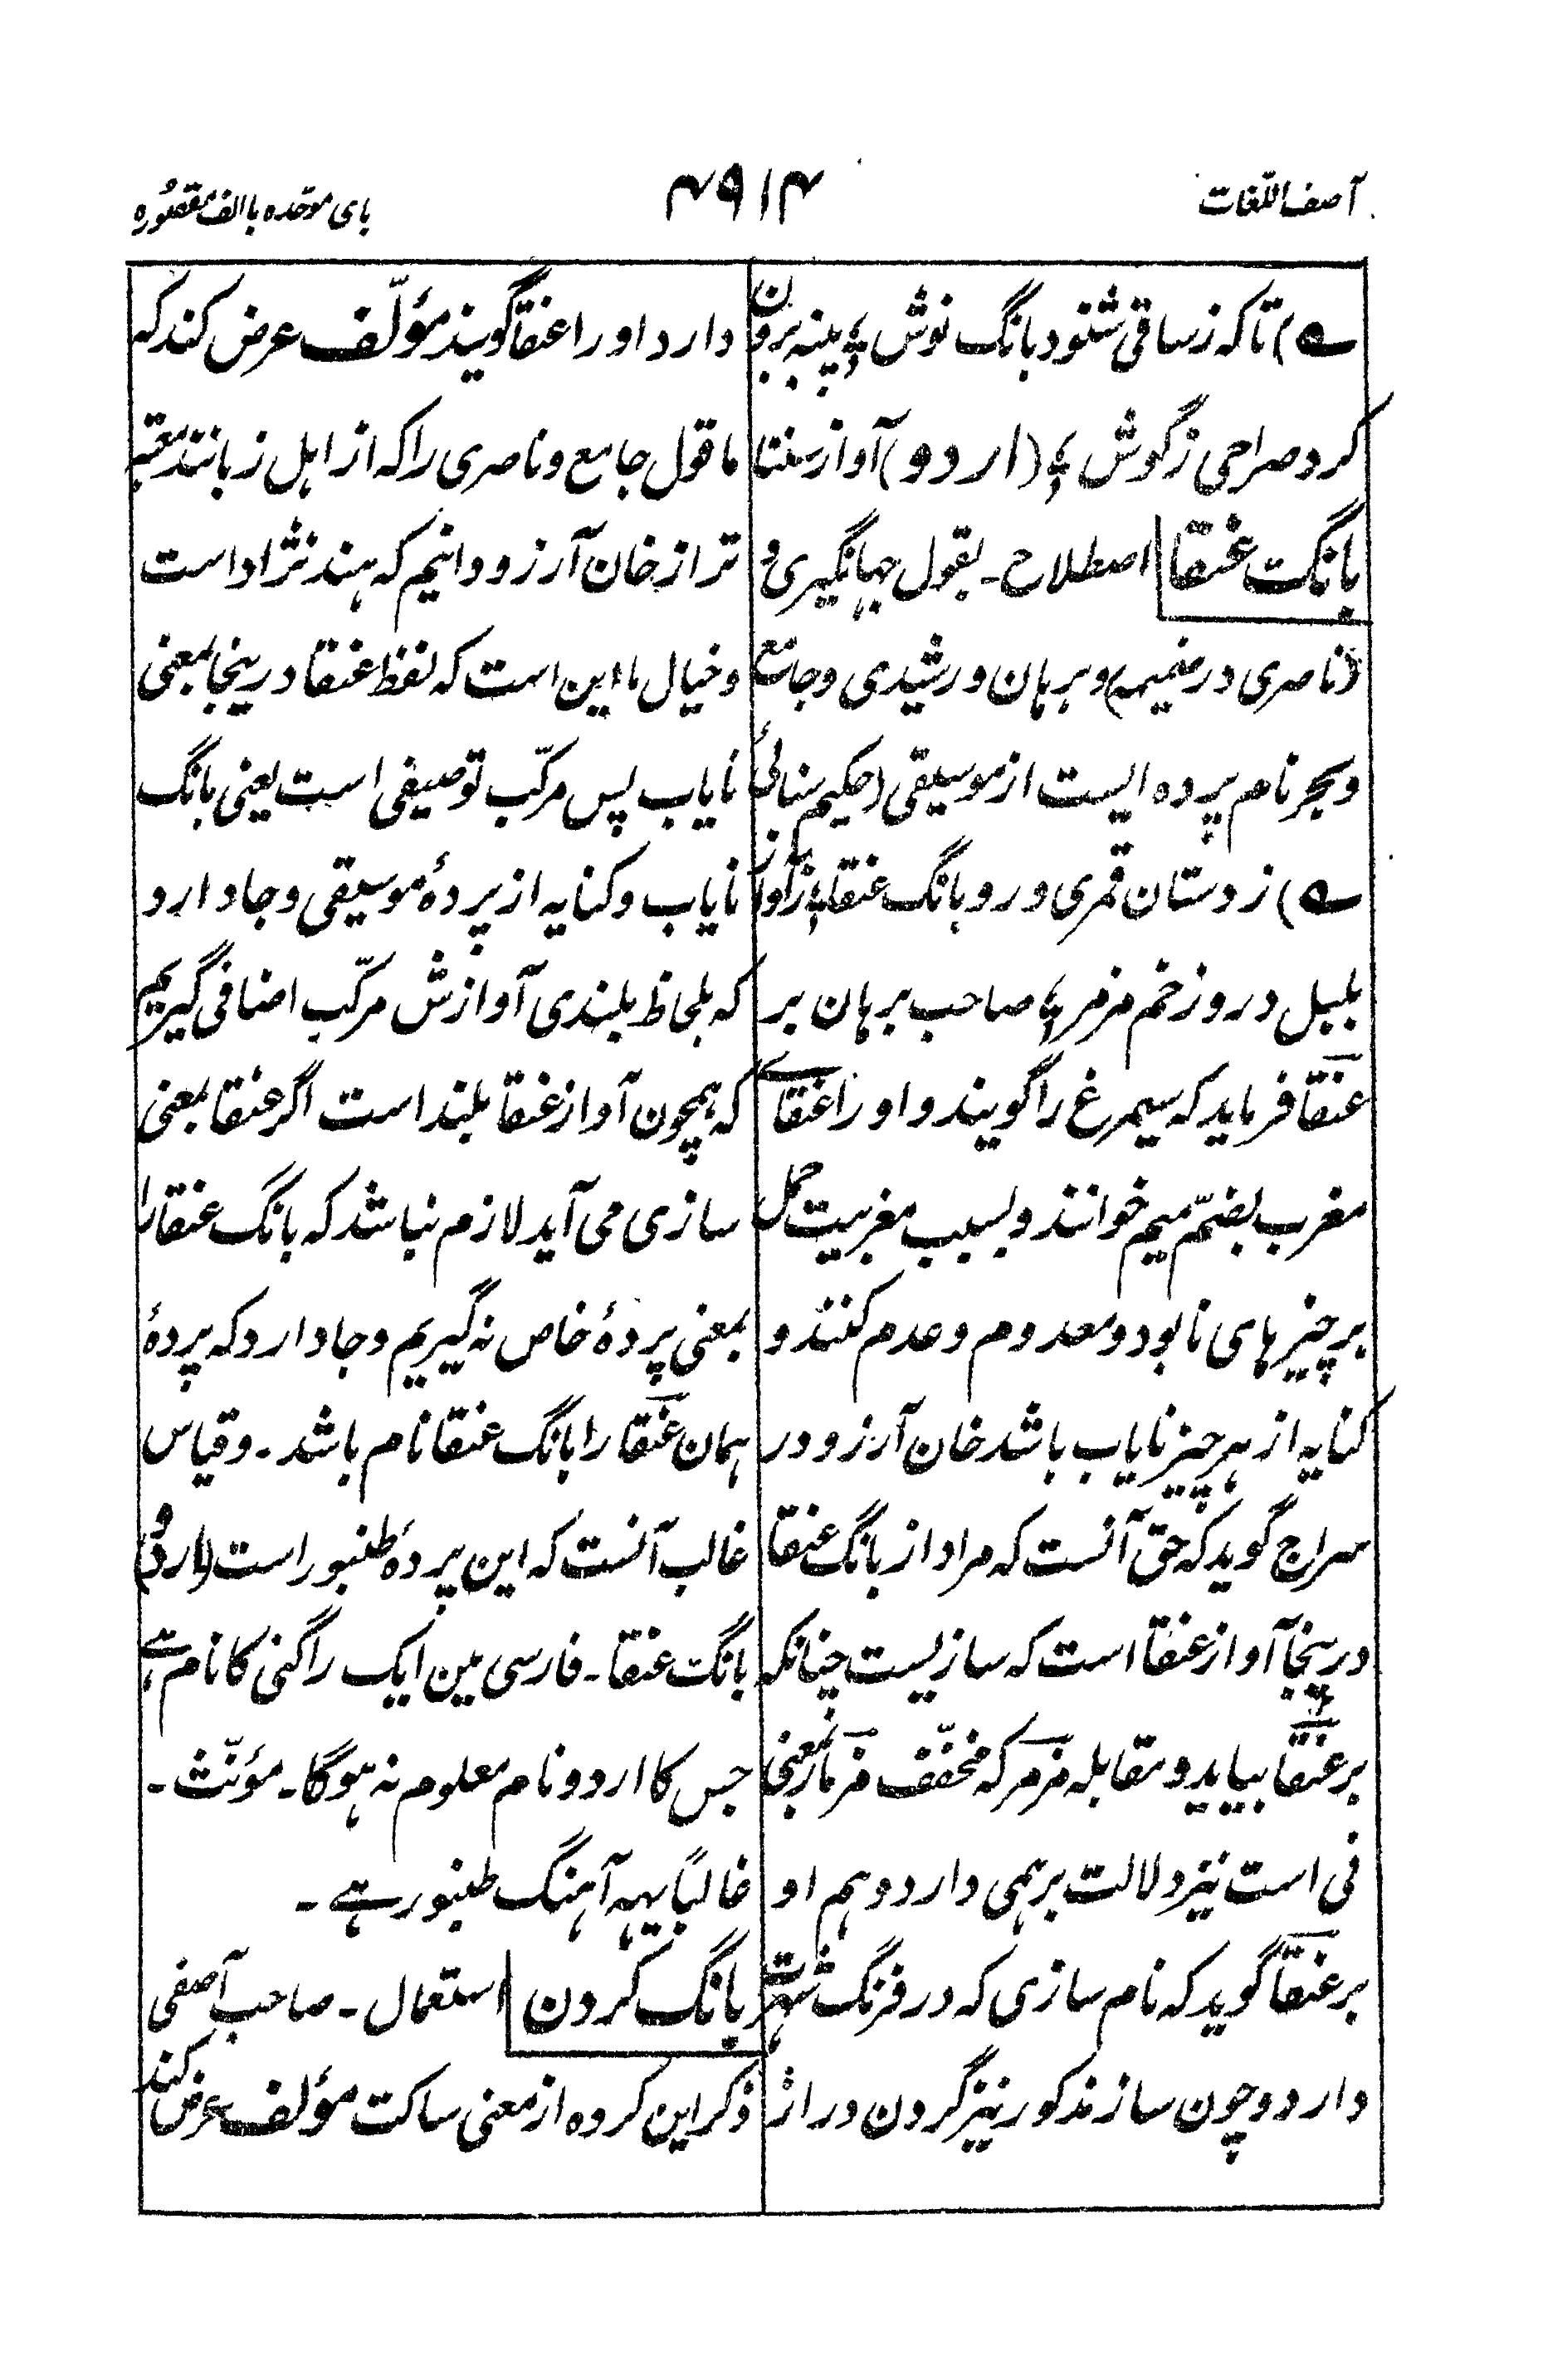 آصف اللّغات
۴۹۱۴
بای موحّده با الف مقصُوره
؎) تا کہ ز ساقی شنود بانگ نوش ؛ پنبہ برون
کرد صراحی ز گوش ؛ (اردو) آواز سننا
بانگ عنقا اصطلاح۔ بقول جہانگیری و
(ناصری در ضمیمہ) و برہان و رشیدی و جامع
و بحر نام پردہ ایست از موسیقی (حکیم سنائی
؎) ز دستان قمری و رو بانگ عنقا ؛ ز آواز
بلبل در و زخم مزمر ؛ صاحب برہان بر
عنقا فرماید کہ سیمرغ را گویند و او را عنقای
مغرب بضمّ میم خوانند و بسبب مغربیت حمل
بر چیز ہای نابود و معدوم و عدم کنند و
کنایہ از ہر چیز نایاب باشد خان آرزو در
سراج گوید کہ حق آنست کہ مراد از بانگ عنقا
درینجا آواز عنقا است کہ سازیست چنانکہ
بر عنقا بیاید و مقابلہ مزمر کہ مخفّف مزمار بمعنی
نی است نیز دلالت بر ہمی دارد و ہم او
بر عنقا گوید کہ نام سازی کہ در فرنگ شہرت
دارد و چون ساز مذکور نیز گردن دراز
دارد او را عنقا گویند مؤلّف عرض کند کہ
ما قول جامع و ناصری را کہ از اہل زبانند معتبر
تر از خان آرزو دانیم کہ ہند نژاد است
و خیال ما این است کہ لفظ عنقا درینجا بمعنی
نایاب پس مرکّب توصیفی است یعنی بانگ
نایاب و کنایہ از پردۂ موسیقی و جا دارد
کہ بلحاظ بلندی آوازش مرکّب اضافی گیریم
کہ ہمچون آواز عنقا بلند است اگر عنقا بمعنی
سازی می آید لازم نباشد کہ بانگ عنقا را
بمعنی پردۂ خاص نہ گیریم و جا دارد کہ پردۂ
ہمان عنقا را بانگ عنقا نام باشد۔ و قیاس
غالب آنست کہ این پردہ طنبور است (اردو)
بانگ عنقا۔ فارسی مین ایک راگنی کا نام ہے
جس کا اردو نام معلوم نہ ہوگا۔ مؤنّث۔
غالباً یہہ آہنگ طنبور ہے۔
بانگ کردن استعمال۔ صاحب آصفی
ذکر این کردہ از معنی ساکت مؤلف عرض کند